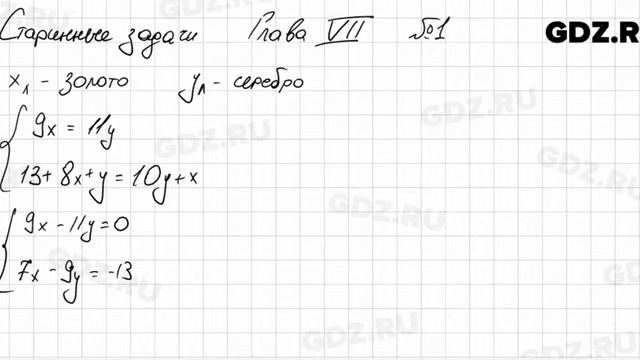 Старинные задачи Глава VII №1 GDZ.R
xл - золото yл - серебро
9x = 11y
13 + 8x + y = 10y + x
9x - 11y = 0
7x - 9y = -13
GDZ.RU
GDZ.RU
GDZ.RU
GDZ.RU
GDZ.RU
GDZ.RU
GDZ.RU